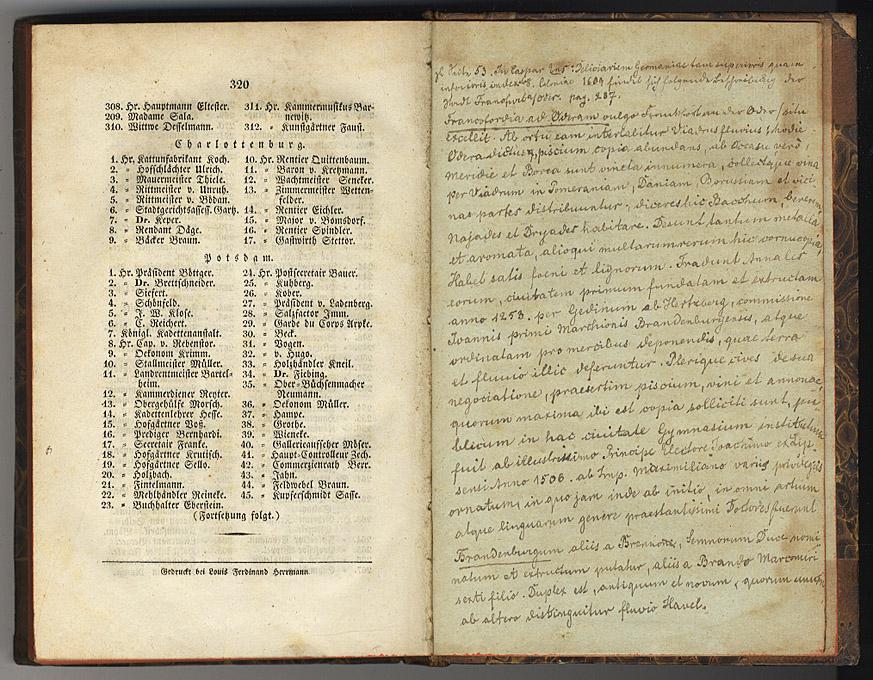 320
308. Hr. Hauptmann Eltester.
209. Madame Sala.
310. Wittwe Desselmann.
311. Hr. Kammermusikus Bar-
newitz.
312. " Kunstgärtner Faust.
Charlottenburg.
1. Hr. Kattunfabrikant Koch.
2. " Hofschlächter Ulrich.
3. " Mauermeister Thiele.
4. " Rittmeister v. Unruh.
5. " Rittmeister v. Bödan.
6. " Stadtgerichtsassess. Gartz.
7. " Dr. Keyer.
8. " Rendant Däge.
9. " Bäcker Braun.
10. Hr. Rentier Quittenbaum.
11. " Baron v. Kreymann.
12. " Wachtmeister Seneker.
13. " Zimmermeister Wetten-
felder.
14. " Rentier Eichler.
15. " Major v. Bomsdorf.
16. " Rentier Spindler.
17. " Gastwirth Stettor.
Potsdam.
1. Hr. Präsident Böttger.
2. " Dr. Brettschneider.
3. " Siefert.
4. " Schönfeld.
5. " J. W. Klose.
6. " C. Reichert.
7. Königl. Kadettenanstalt.
8. Hr. Cap. v. Rebenstor.
9. " Oekonom Krimm.
10. " Stallmeister Müller.
11. " Landrentmeister Bartel-
heim.
12. " Kammerdiener Reyter.
13. " Obergehülfe Morsch.
14. " Kadettenlehrer Hesse.
15. " Hofgärtner Voß.
16. " Prediger Bernhardi.
17. " Secretair Franke.
18. " Hofgärtner Krutisch.
19. " Hofgärtner Sello.
20. " Holzbach.
21. " Fintelmann.
22. " Mehlhändler Reineke.
23. " Buchhalter Eberstein.
24. Hr. Postsecretair Bauer.
25. " Kuhberg.
26. " Kober.
27. " Präsident v. Ladenberg.
28. " Salzfactor Imm.
29. " Garde du Corps Arpke.
30. " Beck.
31. " Vogen.
32. " v. Hugo.
33. " Holzhändler Kneil.
34. " Dr. Fiebing.
35. " Ober-Büchsenmacher
Neumann.
36. " Oekonom Müller.
37. " Hampe.
38. " Grothe.
39. " Wieneke.
40. " Gallerieaufseher Möser.
41. " Haupt-Controlleur Zech.
42. " Commerzienrath Berr.
43. " Jahn.
44. " Feldwebel Braun.
45. " Kupferschmidt Sasse.
(Fortsetzung folgt.)
Gedruckt bei Louis Ferdinand Herrmann.
Seite 53. In Caspar Ens: Deliciarum Germaniae tam superioris quam
inferioris index Coloniae 1609 findet sich folgende Beschreibung der
Stadt Frankfurt a/Oder. pag. 287.
Francofordia ad Oderam vulgo Franckforthan der Oder, situ
excellit. Ab ortu eam interlabitur Viadrus fluvius, hodie
Odera dictus, piscium copia abundans, ab Occasu vero,
Meridie et Borea sunt vineta innumera, collectaque vina
per Viadrum in Pomeraniam, Daniam, Borussiam et vici
nas partes distribuuntur, diceres hic Bacchum, Cererem
Najades et Dryades habitare. Desunt tantum metalla
et aromata, alioqui multarum rerum hic cornucopia,
Habet satis foeni et lignorum. Tradunt Annales
eorum, civitatem primum fundatam et extructam
anno 1253. per Gedinum ab Hertzberg, commissione
Ioannis primi Marchionis Brandenburgensis, atque
ordinatam pro mercibus deponendis, quae terra
et fluvio illic deferuntur. Plerique cives de sua
negociatione, praesertim piscium, vini et annonae,
quorum maxima ibi est copia solliciti sunt, pu
blicum in hac civitate Gymnasium institutum
fuit ab illustrissimo Principe Electore Joachimo
sensi Anno 1506. ab Imp. Maximiliano variis privilegiis
ornatum, in quo jam inde ab initio, in omni artium
atque linguarum genere praestantissimi Doctores fuerunt
Brandenburgum aliis a Brennone, Semnonum Duce nomi
natum et extructum putatur, aliis a Brando Marcomiri
sexti filio. Duplex est, antiquum et novum, quorum unum
ab altero distinguitur fluvio Havel.